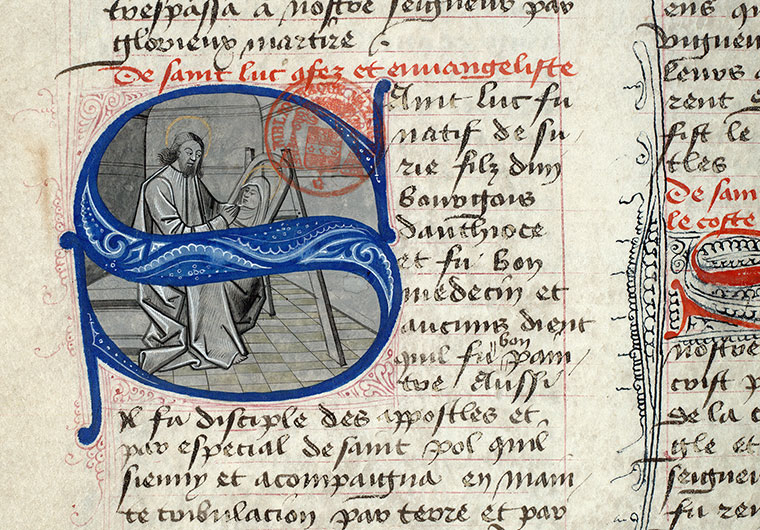 trespassa a nostre seigneur par
glorieux martire.
De saint luc 9fez et euuangeliste
Saint luc fu
natif de su
rie filz dun
bourgois
danthioce
et fu bon
medecin et
aucuns dient
quil fu bon pain
tre Aussi
il fu disciple des appostles et
par especial de saint pol quil
sieuuy et acompaigna en main
te tribulacion par terre et par
ens qu
rent
fist le
tles
De sain
le coste
nostre
crist p
de la c
gle et
seigneu
fu ren